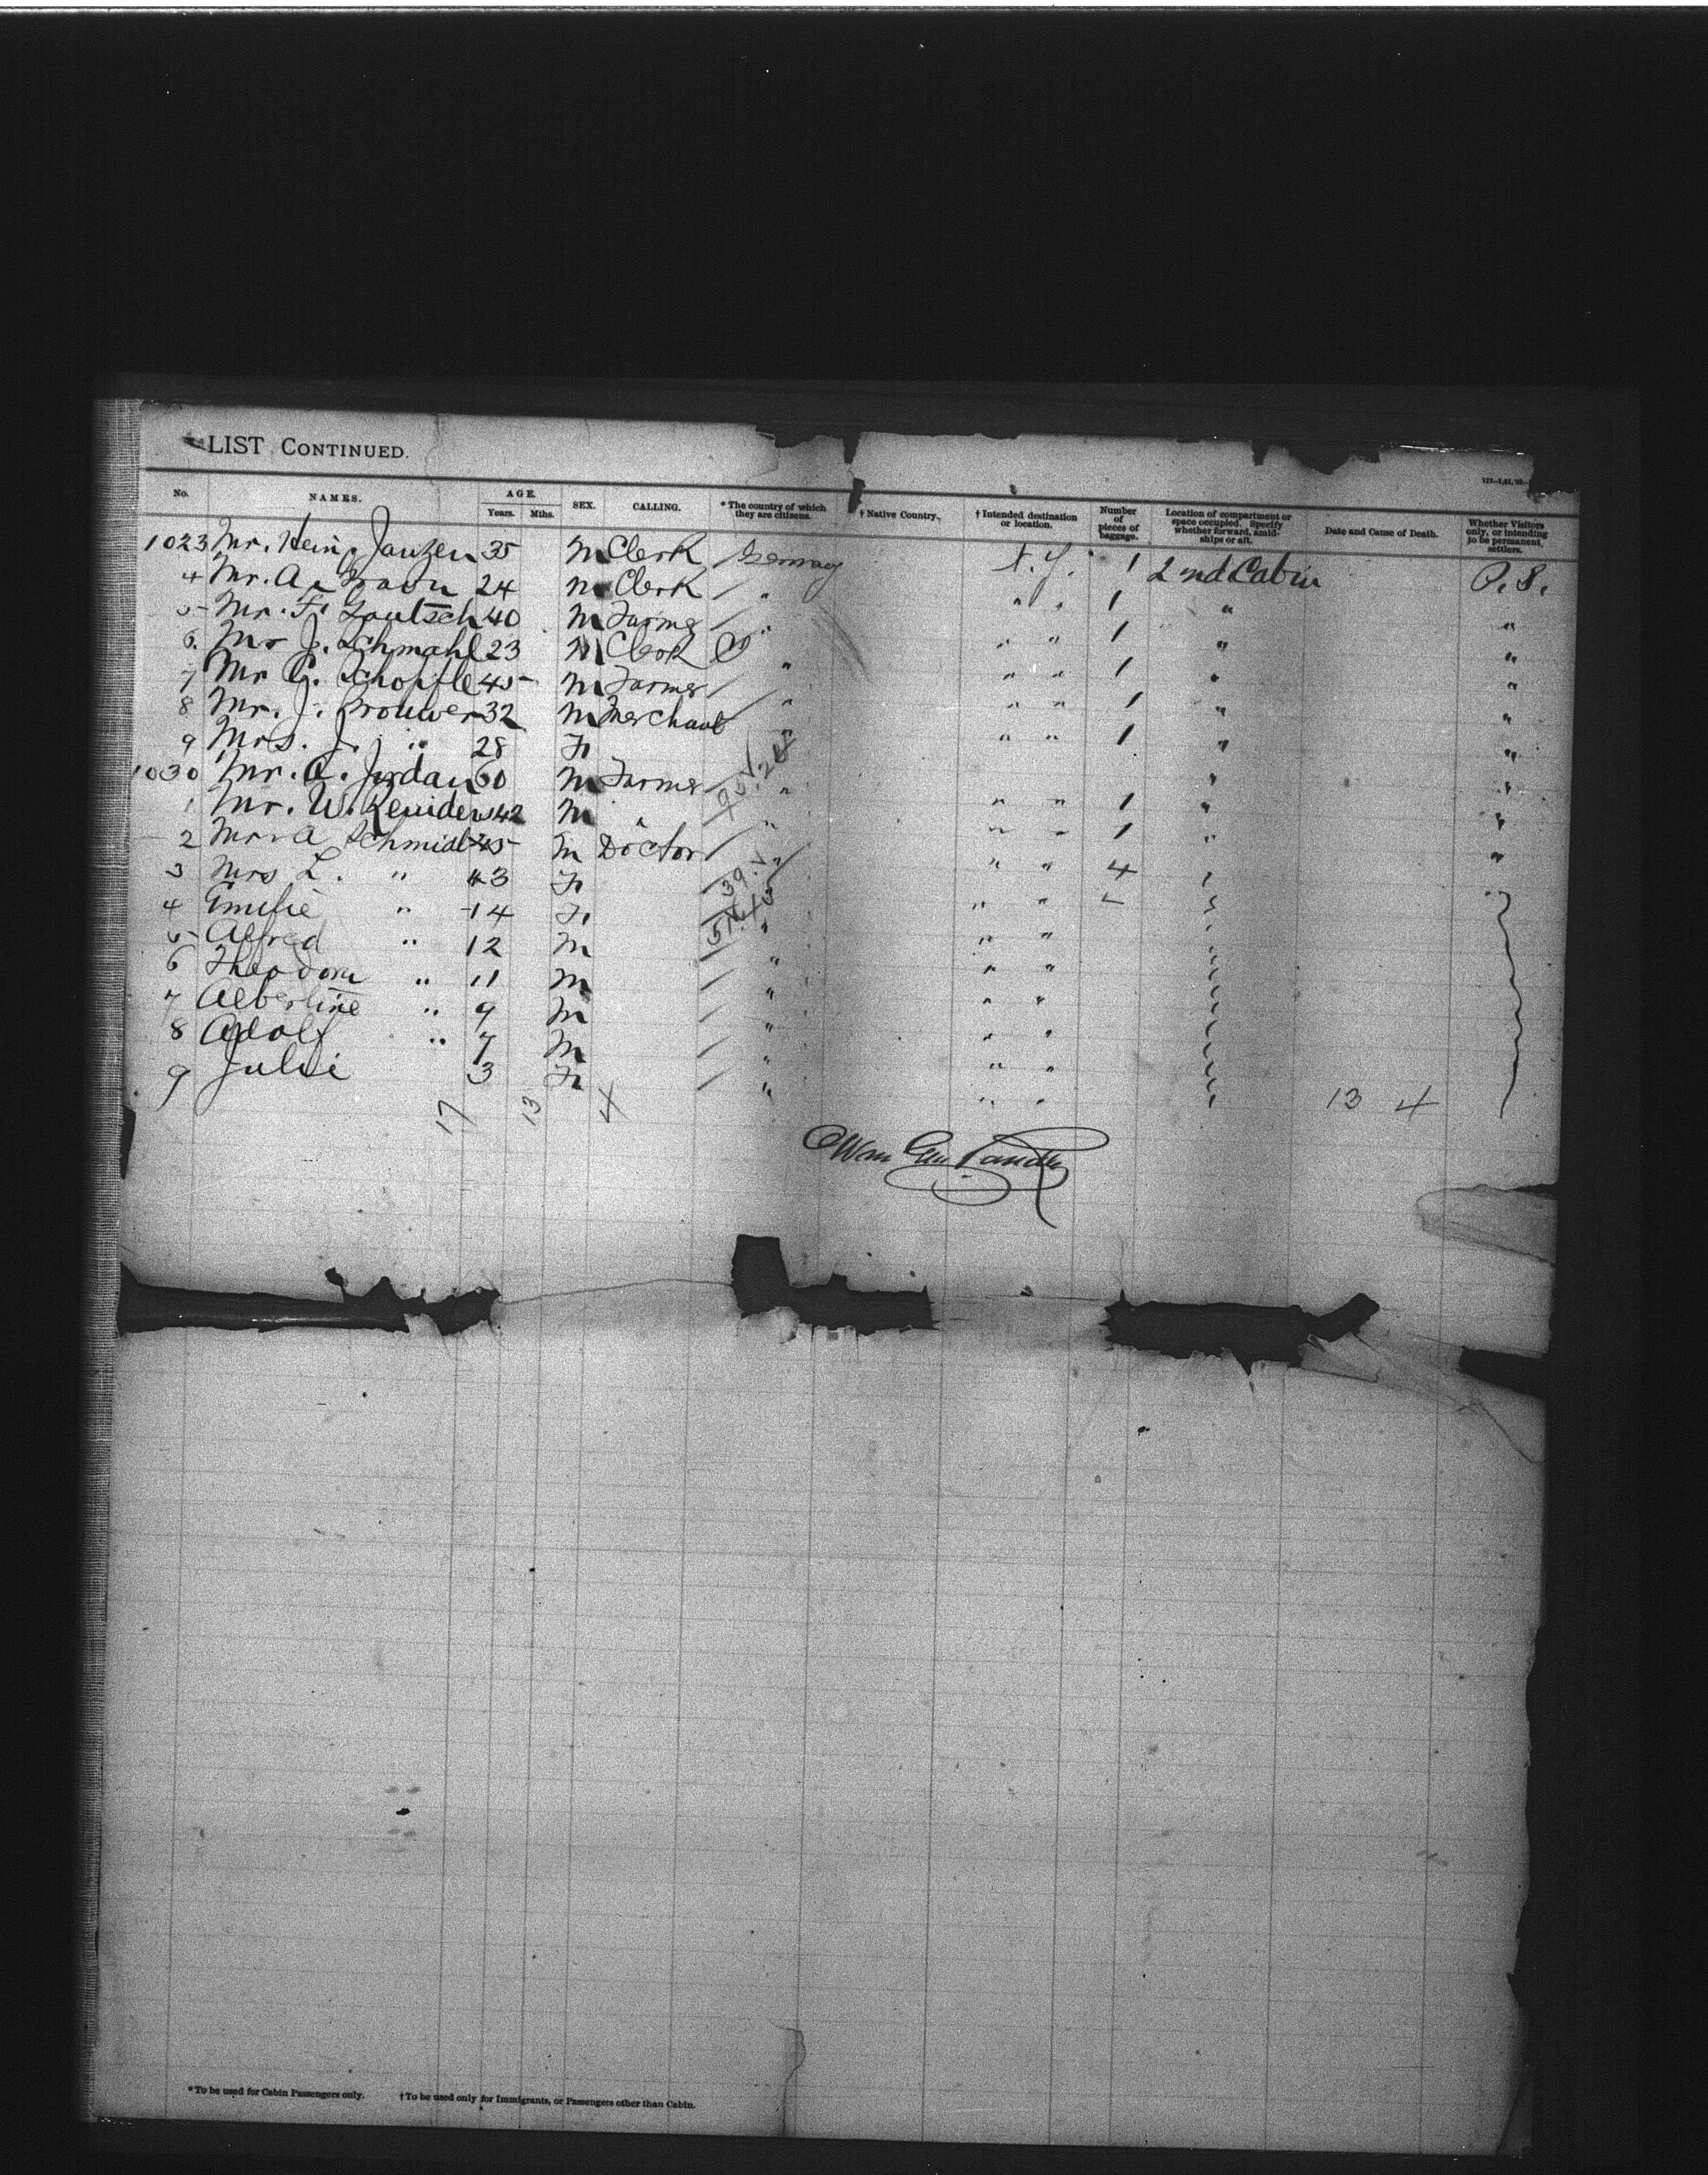 LIST CONTINUED.
No. NAMES. AGE. Years. Mths. SEX. CALLING. * The country of which they are citizens. † Native Country. † Intended destination or location. Number of pieces of baggage. Location of compartment or space occupied. Specify whether forward, amidships or aft. Date and Cause of Death. Whether Visitors only, or intending to be permanent settlers.
1023 Mr. Hein, Janzen 35 M Clerk / Germany N.Y. 1 2nd Cabin P.S.
4 Mr. A. 24 M Clerk / " " " 1 " "
5 Mr. F. 40 M Farmer / " " " 1 " "
6 Mr J. Schmahl 23 M Clerk " " " 1 " "
7 Mr G. Schopfle 45 M Farmer / " " " 1 " "
8 Mr. J. Brouwer 32 M Merchant " " " 1 " "
9 Mrs. J. " 28 F " "
1030 Mr. A. Jordan 60 M Farmer / " " " 1 " "
1 Mr. W. 42 M " " " " 1 " "
2 Mr. A Schmidt 45 M Doctor / " " " 4 " "
3 Mrs L. " 43 F " " " "
4 Emilie " 14 F " " " "
5 Alfred " 12 M / " " " "
6 Theodore " 11 M / " " " "
7 Albertine " 9 M / " " " "
8 Adolf " 7 M / " " " "
9 Julie 3 F / " " " "
17 13 4 13 4
*To be used for Cabin Passengers only. †To be used only for Immigrants, or Passengers other than Cabin.